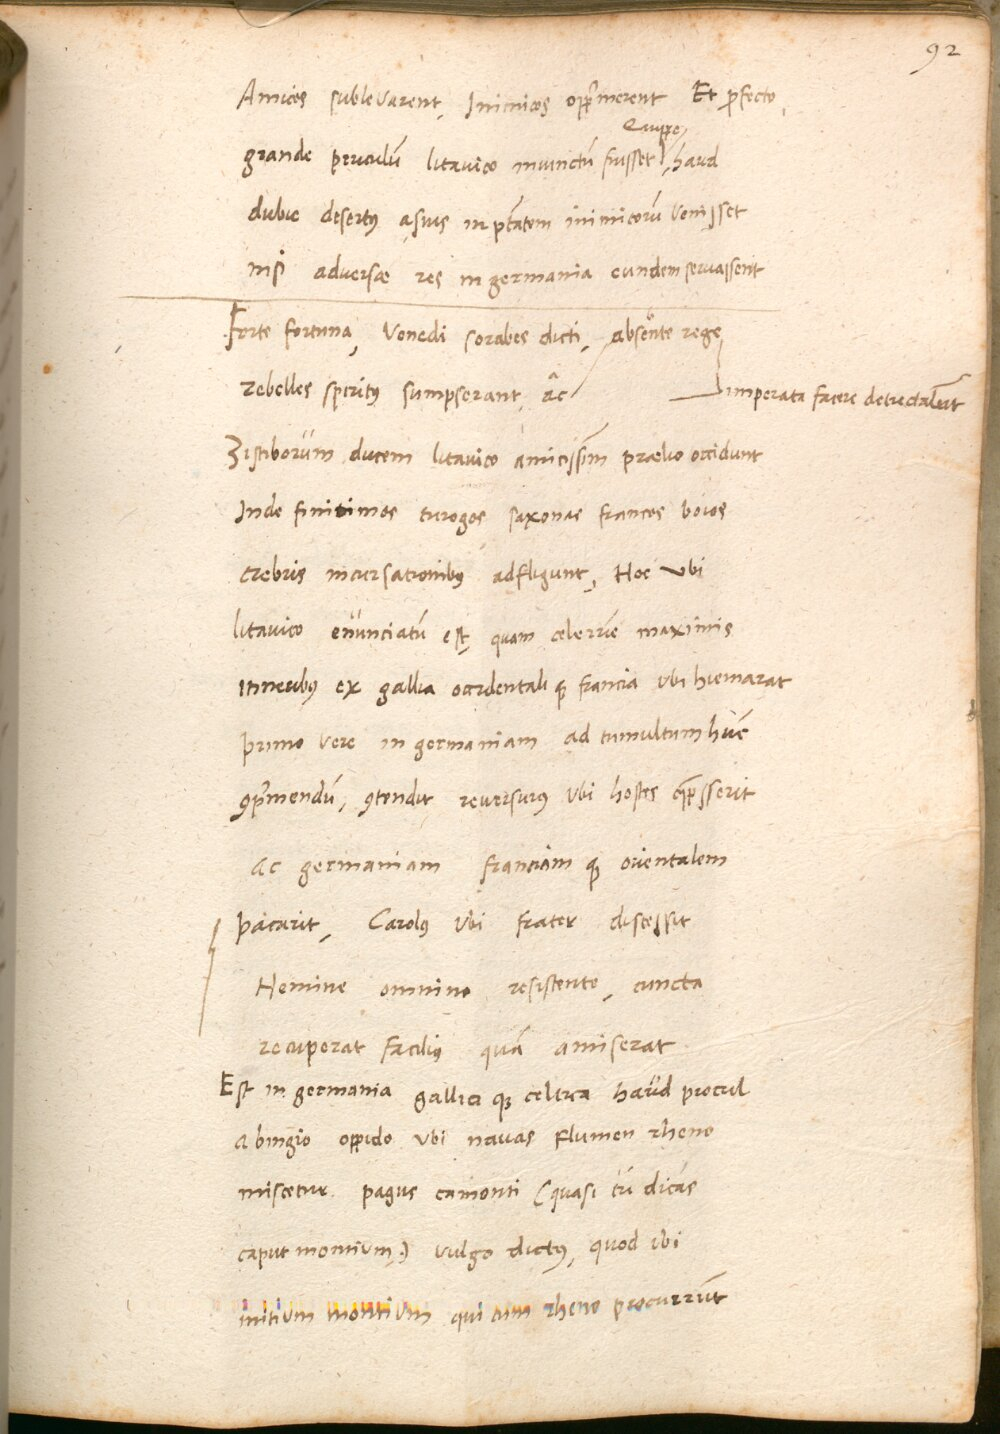 92
Amicos sublevarent, Inimicos opp̃merent Et p̱fecto,
Quippe,
grande periculũ litavico invinctũ fuisset, haud
dubie desertꝰ a suis in ptãtem inimicorũ venisset
nisi adversæ res in germania eundem servassent
Forte fortuna, Venedi sorabes dicti, absente rege
rebelles spiritꝰ sumpserant âc imperata facere detrectabãt
Zistiborum ducem litavico amicissim̃ prælio occidunt
Inde finitimos turogos saxonas francos boios
crebris incursationibꝰ adfligunt, Hoc Vbi
litavico enunciatũ est, quam celerrie maximis
itineribꝰ ex gallia occidentali ꝙ francia Vbi hiemarat
primo vere in germaniam ad tumultum hũc
ꝯp̃mendũ, ꝯtendit reversurꝰ Vbi hostes ꝯpesserit
Ac germaniam franciam ꝙ orientalem
pacarit, Carolꝰ Vbi frater discessit
Nemine omnino resistente, cuncta
recuperat faciliꝰ quã amiserat
Est in germania gallica ꝙ celtica haud procul
a bingio oppido Vbi navas flumen rheno
miscetur pagus camonti (quasi tũ dicas
caput montium.) vulgo dictꝰ, quod ibi
initium montium qui cum rheno procurrũt